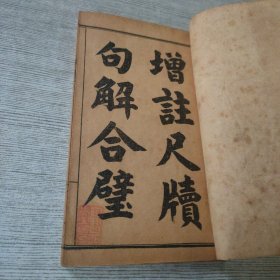 增註尺牘
句解合璧